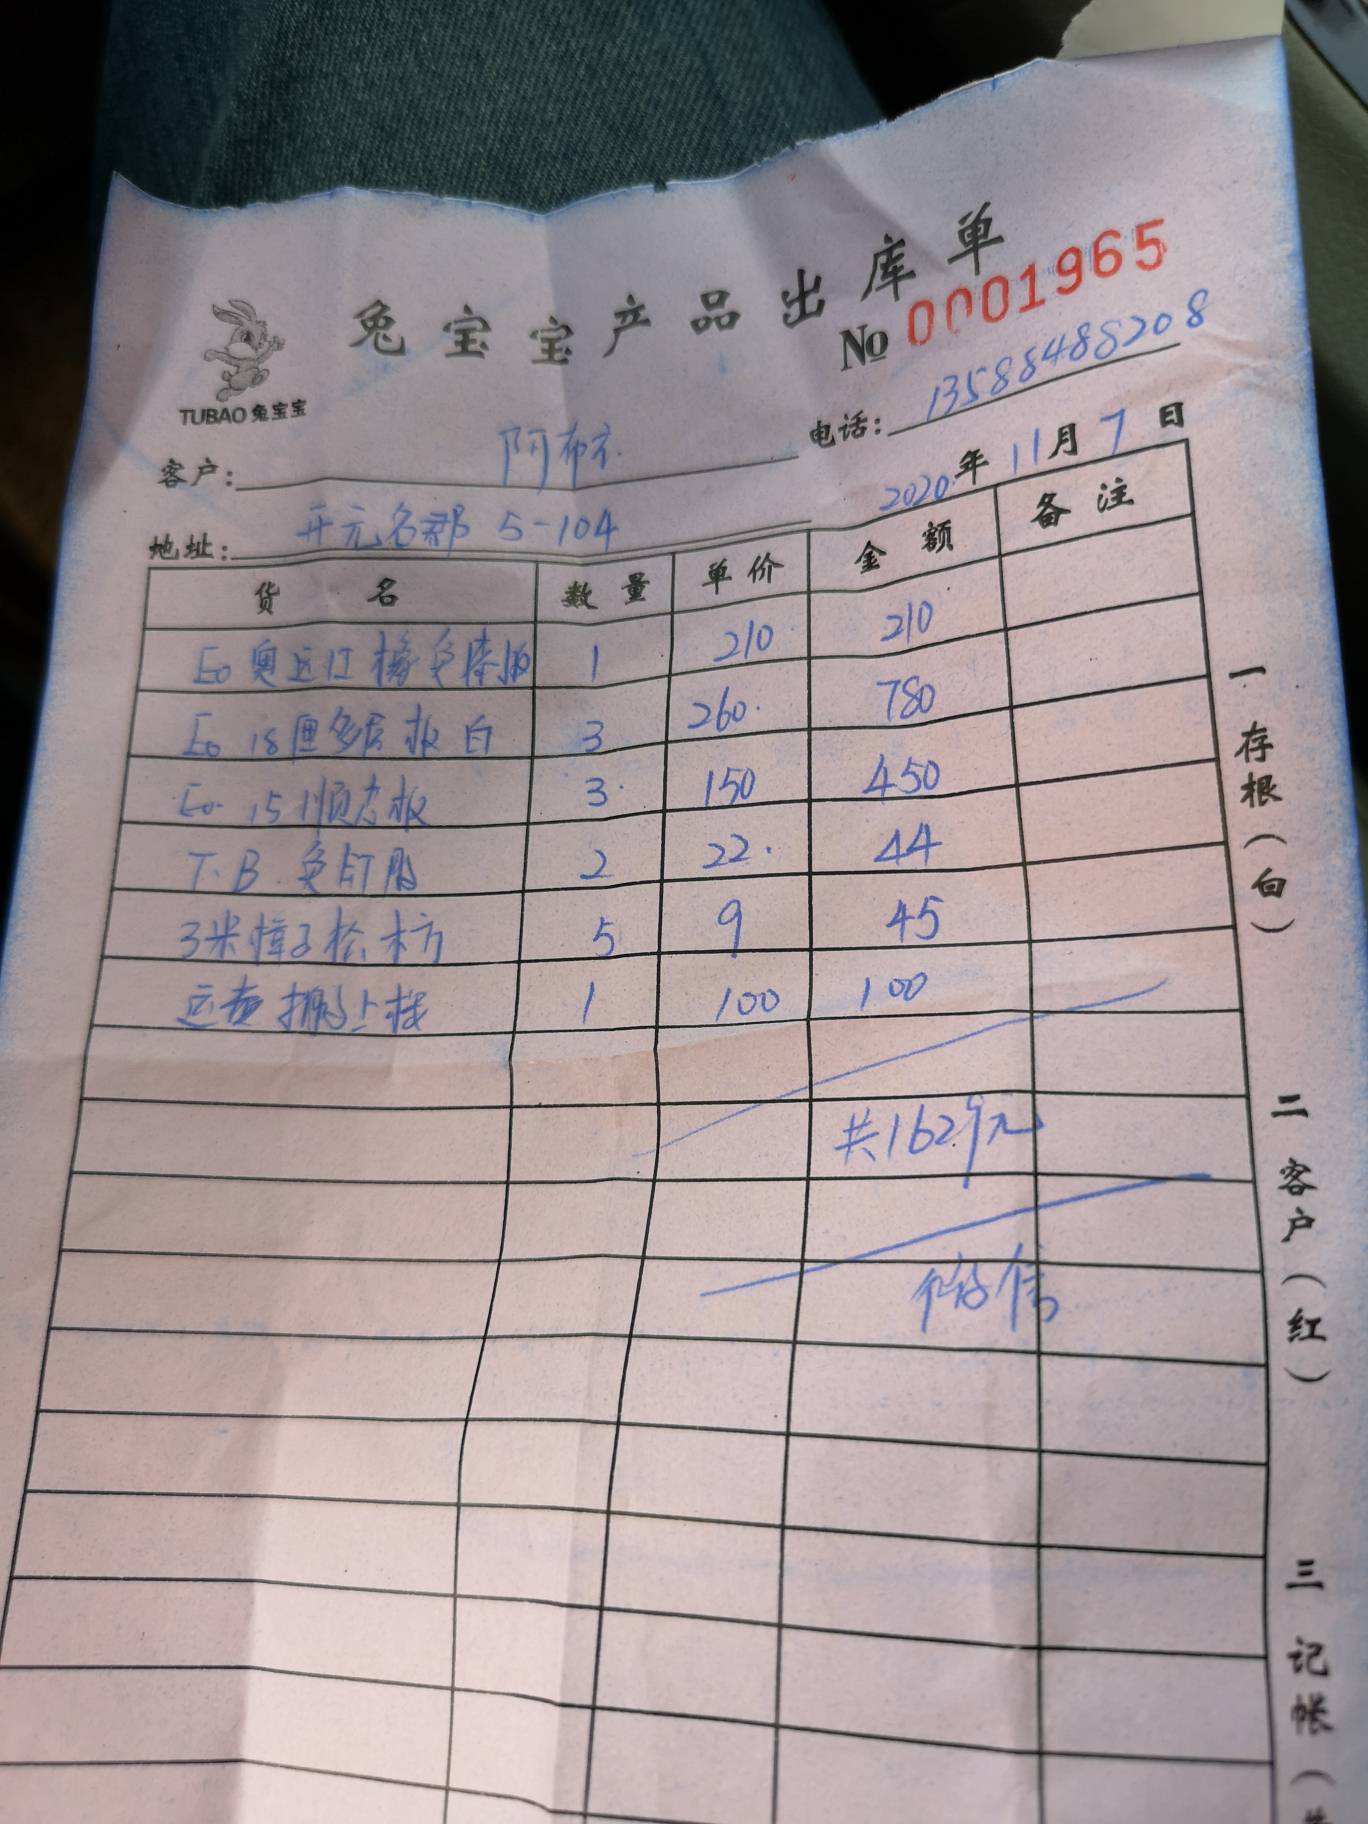 兔宝宝产品出库单
№ 0001965
TUBAO兔宝宝
电话: 13588488208
客户: 阿布
2020年11月7日
地址: 开元名郡 5-104
货名 数量 单价 金额 备注
E0 奥 1 210 210
E0 18厘多层板 白 3 260 780
E0 15 顺芯板 3 150 450
T.B. 免钉胶 2 22 44
3米樟子松木方 5 9 45
运费 搬上楼 1 100 100
共1629元
一存根(白)
二客户(红)
三记帐(